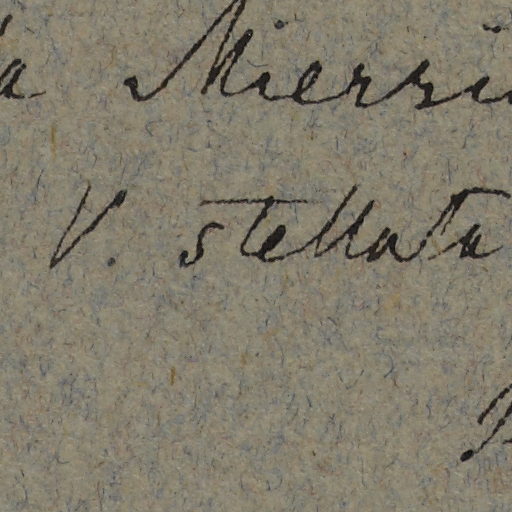 a Miersi
V. stellata